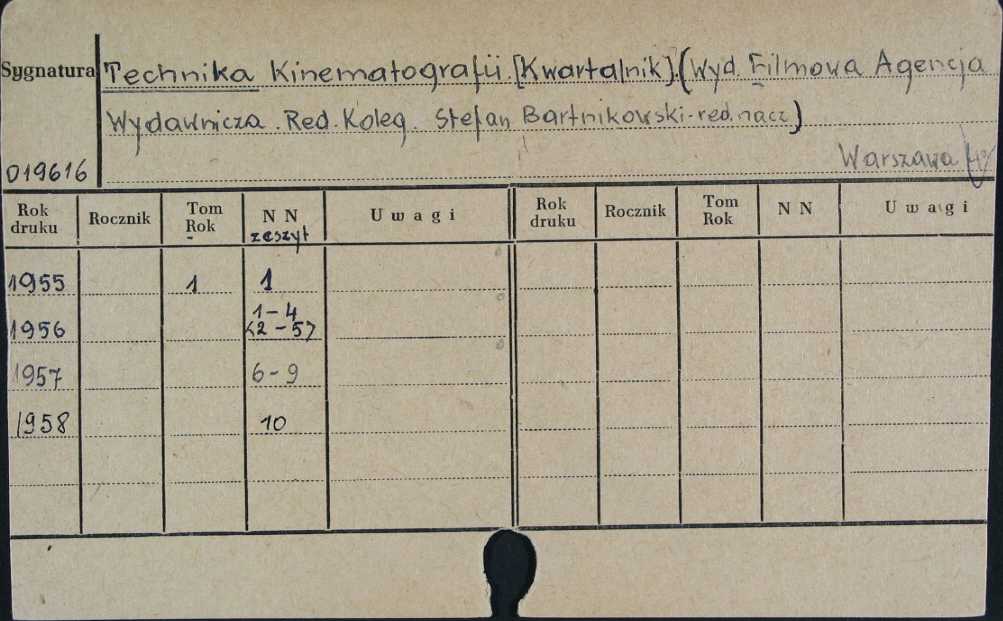 Sygnatura Technika Kinematografii. [Kwartalnik]. (Wyd. Filmowa Agencja
Wydawnicza. Red. Koleg. Stefan Bartnikowski-red. nacz)
019616 Warszawa
Rok druku Rocznik Tom Rok NN zeszyt Uwagi Rok druku Rocznik Tom Rok NN Uwagi
1955 1 1
1956 1-4 <2-5>
1957 6-9
1958 10